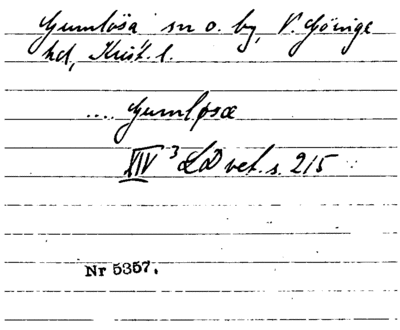 Gumlösa sn o. by, V. Göinge
hd, Krist. l.
.... Gumløsæ
XIV 3 LD vet. s. 215
Nr 5357.